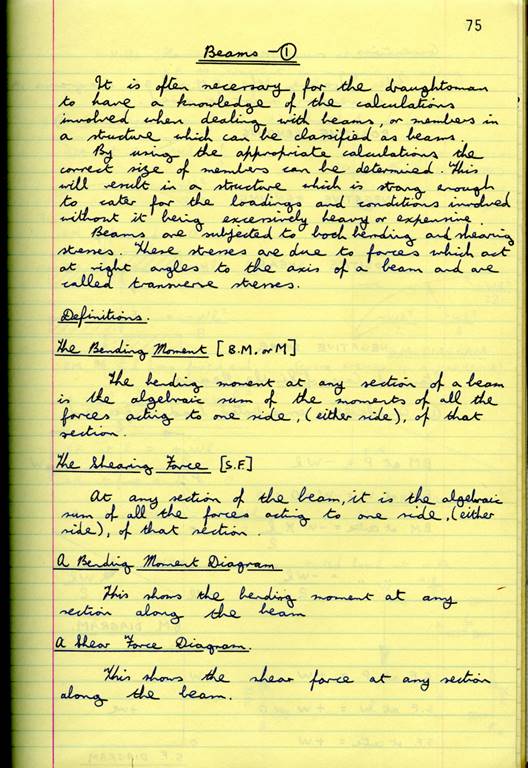 75
Beams - 1
It is often necessary for the draughtsman
to have a knowledge of the calculations
involved when dealing with beams, or members in
a stucture which can be classified as beams.
By using the appropriate calculations the
correct size of members can be determined. This
will result in a structure which is strong enough
to cater for the loadings and conditions involved
without it being excessively heavy or expensive.
Beams are subjected to both bending and shearing
stresses. These stresses are due to forces which act
at right angles to the axis of a beam and are
called transverse stresses.
Definitions.
The Bending Moment [B.M. or M]
The bending moment at any section of a beam
is the algebraic sum of the moments of all the
forces acting to one side, (either side), of that
section.
The Shearing Force [S.F.]
At any section of the beam, it is the algebraic
sum of all the forces acting to one side, (either
side), of that section.
A Bending Moment Diagram
This shows the bending moment at any
section along the beam
A Shear Force Diagram.
This shows the shear force at any section
along the beam.